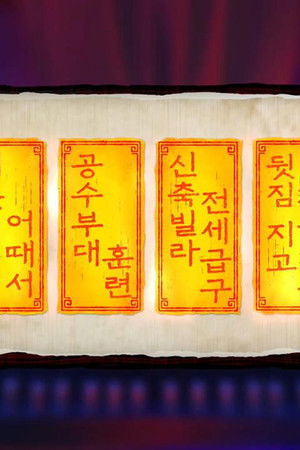 어때서
공수부대
훈련
신축빌라
전세급구
뒷짐
지고